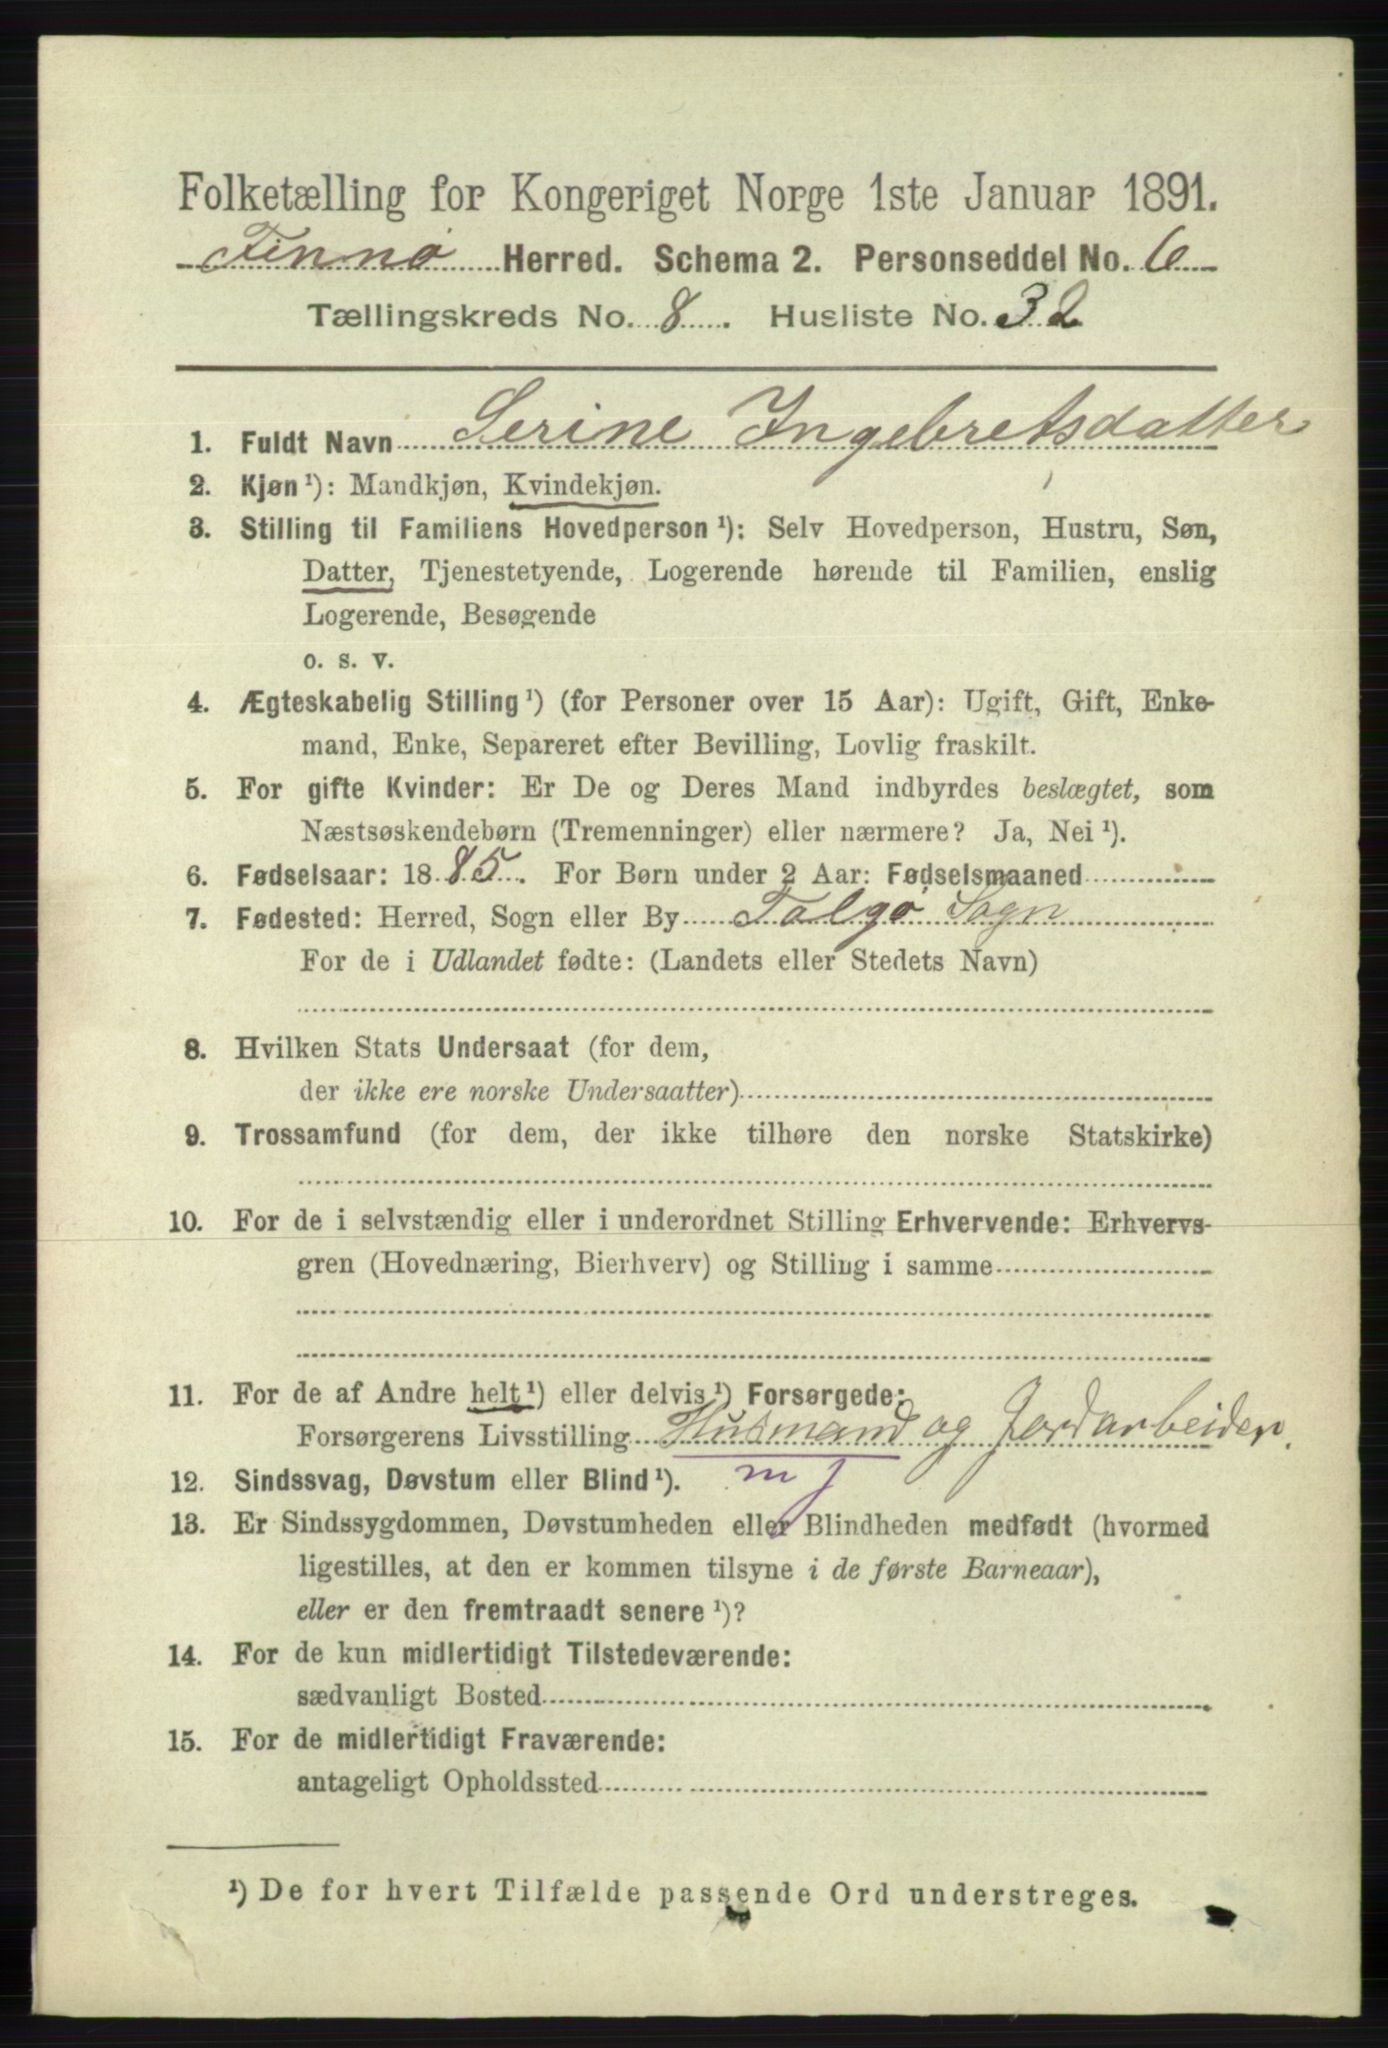 Folketælling for Kongeriget Norge 1ste Januar 1891.
Finnø Herred. Schema 2. Personseddel No. 6
Tællingskreds No. 8. Husliste No. 32
1. Fuldt Navn Serine Ingebretsdatter
2. Kjøn¹): Mandkjøn, Kvindekjøn.
3. Stilling til Familiens Hovedperson¹): Selv Hovedperson, Hustru, Søn,
Datter, Tjenestetyende, Logerende hørende til Familien, enslig
Logerende, Besøgende
o. s. v.
4. Ægteskabelig Stilling¹) (for Personer over 15 Aar): Ugift, Gift, Enke-
mand, Enke, Separeret efter Bevilling, Lovlig fraskilt.
5. For gifte Kvinder: Er De og Deres Mand indbyrdes beslægtet, som
Næstsøskendebørn (Tremenninger) eller nærmere? Ja, Nei¹).
6. Fødselsaar: 1885. For Børn under 2 Aar: Fødselsmaaned
7. Fødested: Herred, Sogn eller By Talgø Sogn
For de i Udlandet fødte: (Landets eller Stedets Navn)
8. Hvilken Stats Undersaat (for dem,
der ikke ere norske Undersaatter)
9. Trossamfund (for dem, der ikke tilhøre den norske Statskirke)
10. For de i selvstændig eller i underordnet Stilling Erhvervende: Erhvervs-
gren (Hovednæring, Bierhverv) og Stilling i samme
11. For de af Andre helt¹) eller delvis¹) Forsørgede:
Forsørgerens Livsstilling Husmand og Jordarbeider.
12. Sindssvag, Døvstum eller Blind¹). m j
13. Er Sindssygdommen, Døvstumheden eller Blindheden medfødt (hvormed
ligestilles, at den er kommen tilsyne i de første Barneaar),
eller er den fremtraadt senere¹)?
14. For de kun midlertidigt Tilstedeværende:
sædvanligt Bosted
15. For de midlertidigt Fraværende:
antageligt Opholdssted
¹) De for hvert Tilfælde passende Ord understreges.